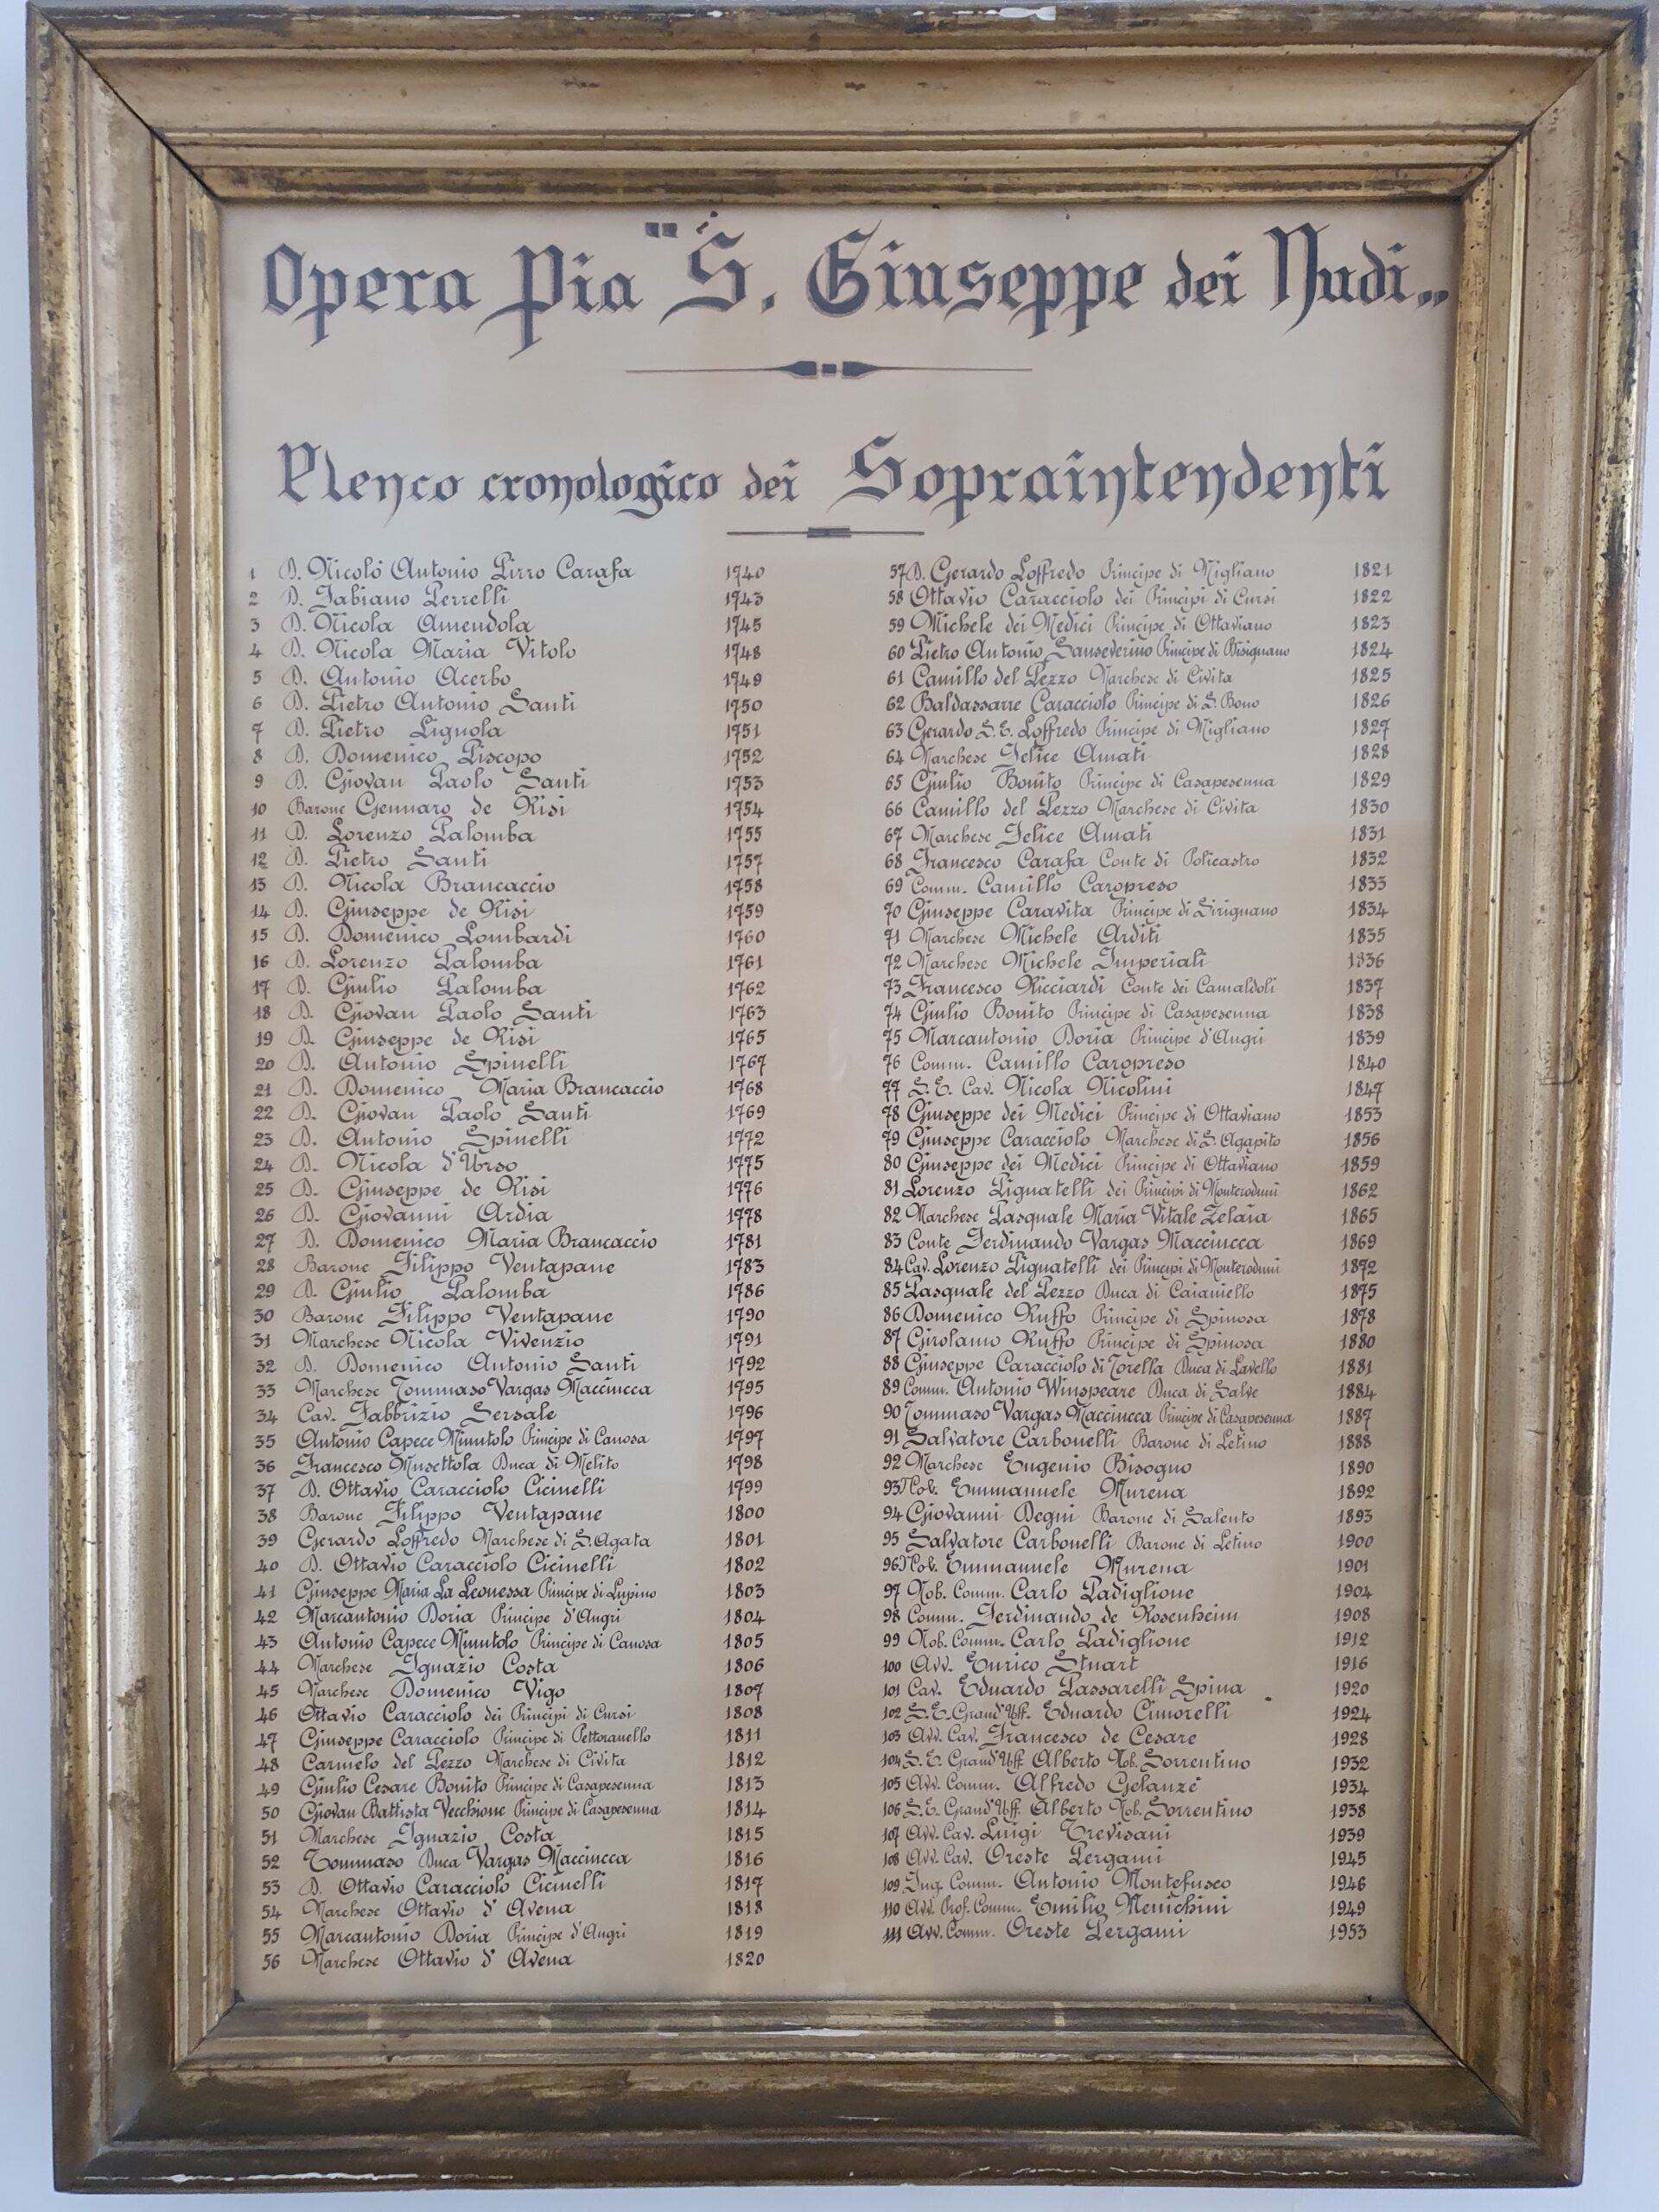 Opera Pia "S. Giuseppe dei Nudi„
Elenco cronologico dei Sopraintendenti
1 D. Nicoló Antonio Pirro Carafa 1740
2 D. Fabiano Perrelli 1743
3 D. Nicola Amendola 1745
4 D. Nicola Maria Vitolo 1748
5 D. Antonio Acerbo 1749
6 D. Pietro Antonio Santi 1750
7 D. Pietro Lignola 1751
8 D. Domenico Piscopo 1752
9 D. Giovan Paolo Santi 1753
10 Barone Gennaro de Risi 1754
11 D. Lorenzo Palomba 1755
12 D. Pietro Santi 1757
13 D. Nicola Brancaccio 1758
14 D. Giuseppe de Risi 1759
15 D. Domenico Lombardi 1760
16 D. Lorenzo Palomba 1761
17 D. Giulio Palomba 1762
18 D. Giovan Paolo Santi 1763
19 D. Giuseppe de Risi 1765
20 D. Antonio Spinelli 1767
21 D. Domenico Maria Brancaccio 1768
22 D. Giovan Paolo Santi 1769
23 D. Antonio Spinelli 1772
24 D. Nicola d'Urso 1775
25 D. Giuseppe de Risi 1776
26 D. Giovanni Ardia 1778
27 D. Domenico Maria Brancaccio 1781
28 Barone Filippo Ventapane 1783
29 D. Giulio Palomba 1786
30 Barone Filippo Ventapane 1790
31 Marchese Nicola Vivenzio 1791
32 D. Domenico Antonio Santi 1792
33 Marchese Tommaso Vargas Macciucca 1795
34 Cav. Fabbrizio Sersale 1796
35 Antonio Capece Minutolo Principe di Canosa 1797
36 Francesco Musettola Duca di Melito 1798
37 D. Ottavio Caracciolo Cicinelli 1799
38 Barone Filippo Ventapane 1800
39 Gerardo Loffredo Marchese di S. Agata 1801
40 D. Ottavio Caracciolo Cicinelli 1802
41 Giuseppe Maria La Leonessa Principe di Lupino 1803
42 Marcantonio Doria Principe d'Angri 1804
43 Antonio Capece Minutolo Principe di Canosa 1805
44 Marchese Ignazio Costa 1806
45 Marchese Domenico Vigo 1807
46 Ottavio Caracciolo dei Principi di Cursi 1808
47 Giuseppe Caracciolo Principe di Pettoranello 1811
48 Carmelo del Pezzo Marchese di Civita 1812
49 Giulio Cesare Bonito Principe di Casapesenna 1813
50 Giovan Battista Vecchione Principe di Casapesenna 1814
51 Marchese Ignazio Costa 1815
52 Tommaso Duca Vargas Macciucca 1816
53 D. Ottavio Caracciolo Cicinelli 1817
54 Marchese Ottavio d' Avena 1818
55 Marcantonio Doria Principe d'Angri 1819
56 Marchese Ottavio d' Avena 1820
57 D. Gerardo Loffredo Principe di Migliano 1821
58 Ottavio Caracciolo dei Principi di Cursi 1822
59 Michele dei Medici Principe di Ottaviano 1823
60 Pietro Antonio Sanseverino Principe di Bisignano 1824
61 Camillo del Pezzo Marchese di Civita 1825
62 Baldassarre Caracciolo Principe di S. Bono 1826
63 Gerardo S. E. Loffredo Principe di Migliano 1827
64 Marchese Felice Amati 1828
65 Giulio Bonito Principe di Casapesenna 1829
66 Camillo del Pezzo Marchese di Civita 1830
67 Marchese Felice Amati 1831
68 Francesco Carafa Conte di Policastro 1832
69 Comm. Camillo Caropreso 1833
70 Giuseppe Caravita Principe di Sirignano 1834
71 Marchese Michele Arditi 1835
72 Marchese Michele Imperiali 1836
73 Francesco Ricciardi Conte dei Camaldoli 1837
74 Giulio Bonito Principe di Casapesenna 1838
75 Marcantonio Doria Principe d'Angri 1839
76 Comm. Camillo Caropreso 1840
77 S. E. Cav. Nicola Nicolini 1847
78 Giuseppe dei Medici Principe di Ottaviano 1853
79 Giuseppe Caracciolo Marchese di S. Agapito 1856
80 Giuseppe dei Medici Principe di Ottaviano 1859
81 Lorenzo Pignatelli dei Principi di Monteroduni 1862
82 Marchese Pasquale Maria Vitale Zelaia 1865
83 Conte Ferdinando Vargas Macciucca 1869
84 Cav. Lorenzo Pignatelli dei Principi di Monteroduni 1872
85 Pasquale del Pezzo Duca di Caianiello 1875
86 Domenico Ruffo Principe di Spinosa 1878
87 Girolamo Ruffo Principe di Spinosa 1880
88 Giuseppe Caracciolo di Torella Duca di Lavello 1881
89 Comm. Antonio Winspeare Duca di Salve 1884
90 Tommaso Vargas Macciucca Principe di Casapesenna 1887
91 Salvatore Carbonelli Barone di Letino 1888
92 Marchese Eugenio Bisogno 1890
93 Nob. Emmanuele Murena 1892
94 Giovanni Degni Barone di Salento 1893
95 Salvatore Carbonelli Barone di Letino 1900
96 Nob. Emmanuele Murena 1901
97 Nob. Comm. Carlo Padiglione 1904
98 Comm. Ferdinando de Rosenheim 1908
99 Nob. Comm. Carlo Padiglione 1912
100 Avv. Enrico Stuart 1916
101 Cav. Eduardo Passarelli Spina 1920
102 S. E. Grand'Uff. Eduardo Cimorelli 1924
103 Avv. Cav. Francesco de Cesare 1928
104 S. E. Grand'Uff Alberto Nob. Sorrentino 1932
105 Avv. Comm. Alfredo Gelanzé 1934
106 S. E. Grand'Uff. Alberto Nob. Sorrentino 1938
107 Avv. Cav. Luigi Trevisani 1939
108 Avv. Cav. Oreste Pergami 1945
109 Ing. Comm. Antonio Montefusco 1946
110 Avv. Prof. Comm. Emilio Menichini 1949
111 Avv. Comm. Oreste Pergami 1953